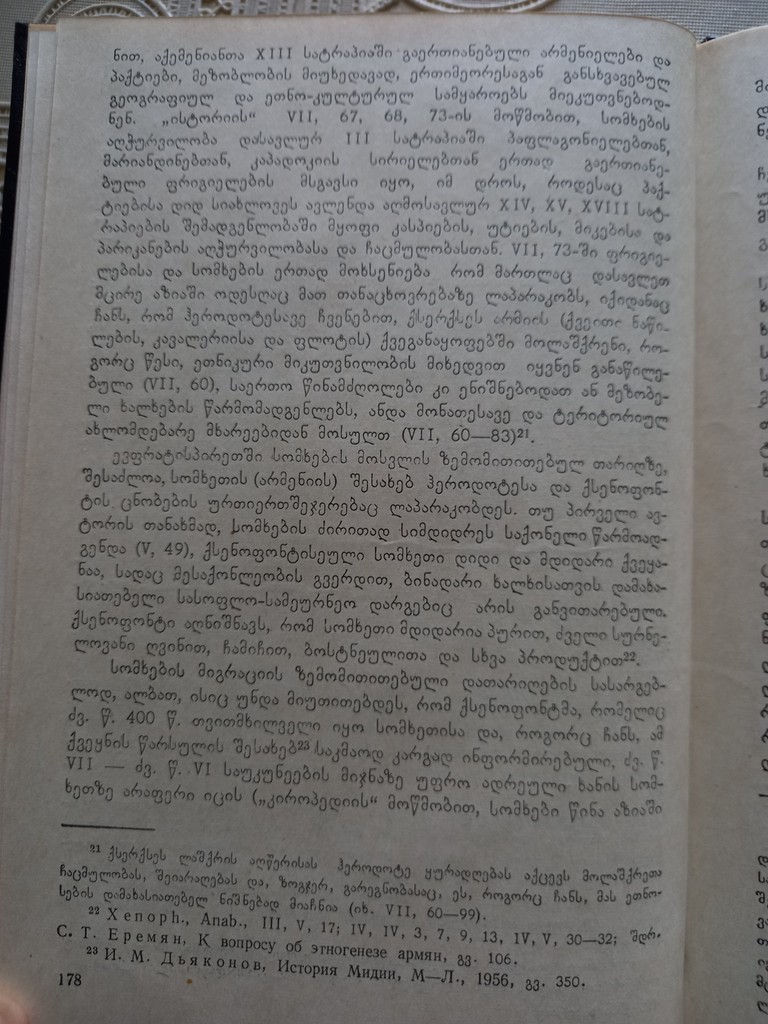 ნით, აქემენიანთა XIII სატრაპიაში გაერთიანებული არმენიელები და
პაქტიები, მეზობლობის მიუხედავად, ერთიმეორესაგან განსხვავებულ
გეოგრაფიულ და ეთნო-კულტურულ სამყაროებს მიეკუთვნებოდ-
ნენ. „ისტორიის“ VII, 67, 68, 73-ის მოწმობით, სომხების
აღჭურვილობა დასავლურ III სატრაპიაში პაფლაგონიელებთან,
მარიანდინებთან, კაპადოკიის სირიელებთან ერთად გაერთიანე-
ბული ფრიგიელების მსგავსი იყო, იმ დროს, როდესაც პაქ-
ტიებისა დიდ სიახლოვეს ავლენდა აღმოსავლურ XIV, XV, XVIII სატ-
რაპიების შემადგენლობაში მყოფი კასპიების, უტიების, მიკებისა და
პარიკანების აღჭურვილობასა და ჩაცმულობასთან. VII, 73-ში ფრიგიე-
ლებისა და სომხების ერთად მოხსენიება რომ მართლაც დასავლეთ
მცირე აზიაში ოდესღაც მათ თანაცხოვრებაზე ლაპარაკობს, იქიდანაც
ჩანს, რომ ჰეროდოტესავე ჩვენებით, ქსერქსეს არმიის (ქვეითი ნაწი-
ლების, კავალერიისა და ფლოტის) ქვეგანაყოფებში მოლაშქრენი, რო-
გორც წესი, ეთნიკური მიკუთვნილობის მიხედვით იყვნენ განაწილე-
ბული (VII, 60), საერთო წინამძღოლები კი ენიშნებოდათ ან მეზობე-
ლი ხალხების წარმომადგენლებს, ანდა მონათესავე და ტერიტორიულ
ახლომდებარე მხარეებიდან მოსულთ (VII, 60—83)²¹.
ევფრატისპირეთში სომხების მოსვლის ზემომითითებულ თარიღზე,
შესაძლოა, სომხეთის (არმენიის) შესახებ ჰეროდოტესა და ქსენოფონ-
ტის ცნობების ურთიერთშეჯერებაც ლაპარაკობდეს. თუ პირველი ავ-
ტორის თანახმად, სომხების ძირითად სიმდიდრეს საქონელი წარმოად-
გენდა (V, 49), ქსენოფონტისეული სომხეთი დიდი და მდიდარი ქვეყა-
ნაა, სადაც მესაქონლეობის გვერდით, ბინადარი ხალხისათვის დამახა-
სიათებელი სასოფლო-სამეურნეო დარგებიც არის განვითარებული.
ქსენოფონტი აღნიშნავს, რომ სომხეთი მდიდარია პურით, ძველი სურნე-
ლოვანი ღვინით, ჩამიჩით, ბოსტნეულითა და სხვა პროდუქტით²².
სომხების მიგრაციის ზემომითითებული დათარიღების სასარგებ-
ლოდ, ალბათ, ისიც უნდა მიუთითებდეს, რომ ქსენოფონტმა, რომელიც
ძვ. წ. 400 წ. თვითმხილველი იყო სომხეთისა და, როგორც ჩანს, ამ
ქვეყნის წარსულის შესახებ²³ საკმაოდ კარგად ინფორმირებული, ძვ. წ.
VII — ძვ. წ. VI საუკუნეების მიჯნაზე უფრო ადრეული ხანის სომ-
ხეთზე არაფერი იცის („კიროპედიის“ მოწმობით, სომხები წინა აზიაში
²¹ ქსერქსეს ლაშქრის აღწერისას ჰეროდოტე ყურადღებას აქცევს მოლაშქრეთა
ჩაცმულობას, შეიარაღებას და, ზოგჯერ, გარეგნობასაც, ეს, როგორც ჩანს, მას ეთნო-
სების დამახასიათებელ ნიშნებად მიაჩნია (იხ. VII, 60—99).
²² Xenoph., Anab., III, V, 17; IV, IV, 3, 7, 9, 13, IV, V, 30—32; შდრ.
С. Т. Еремян, К вопросу об этногенезе армян, გვ. 106.
²³ И. М. Дьяконов, История Мидии, М—Л., 1956, გვ. 350.
178